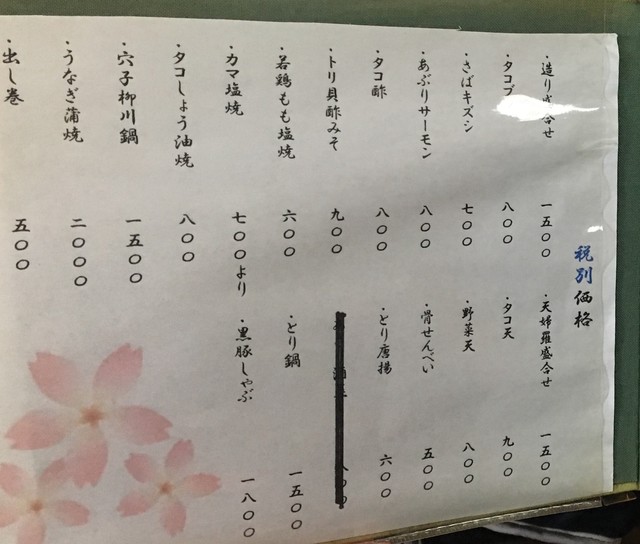 税別価格
・造り盛合せ 一五〇〇
・タコブ 八〇〇
・さばキズシ 七〇〇
・あぶりサーモン 八〇〇
・タコ酢 八〇〇
・トリ貝酢みそ 九〇〇
・若鶏もも塩焼 六〇〇
・カマ塩焼 七〇〇より
・タコしょう油焼 八〇〇
・穴子柳川鍋 一五〇〇
・うなぎ蒲焼 二〇〇〇
・出し巻 五〇〇
・天婦羅盛合せ 一五〇〇
・タコ天 九〇〇
・野菜天 八〇〇
・骨せんべい 五〇〇
・とり唐揚 六〇〇
・とり鍋 一五〇〇
・黒豚しゃぶ 一八〇〇